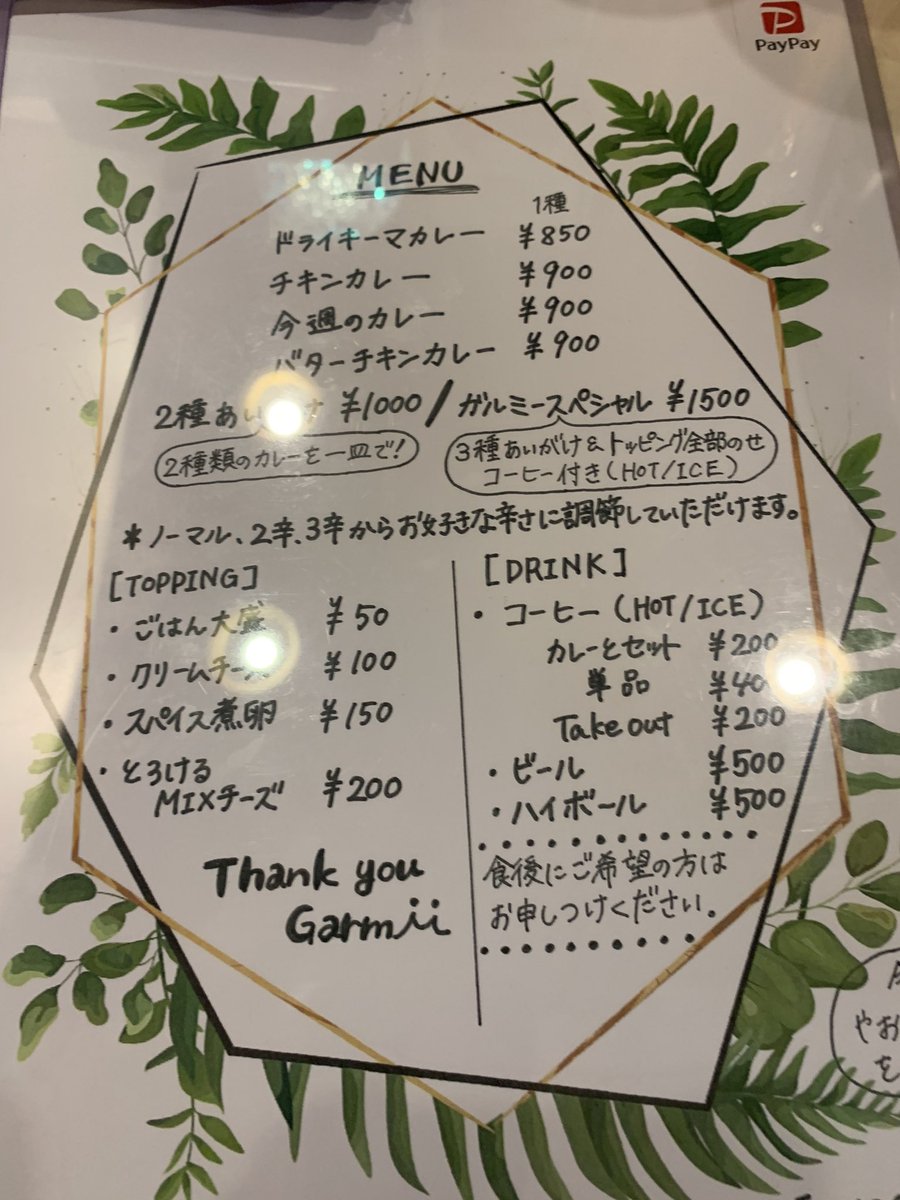 PayPay
MENU
1種
ドライキーマカレー ¥850
チキンカレー ¥900
今週のカレー ¥900
バターチキンカレー ¥900
2種 ¥1000 / ガルミースペシャル ¥1500
2種類のカレーを一皿で!
3種あいがけ & トッピング全部のせ
コーヒー付き(HOT/ICE)
*ノーマル、2辛、3辛からお好きな辛さに調節していただけます。
[TOPPING]
・ごはん大盛 ¥50
・クリームチーズ ¥100
・スパイス煮卵 ¥150
・とろける
MIXチーズ ¥200
Thank you
Garmii
[DRINK]
・コーヒー(HOT/ICE)
カレーとセット ¥200
単品
Take out ¥200
・ビール ¥500
・ハイボール ¥500
食後にご希望の方は
お申しつけください。
やお
を